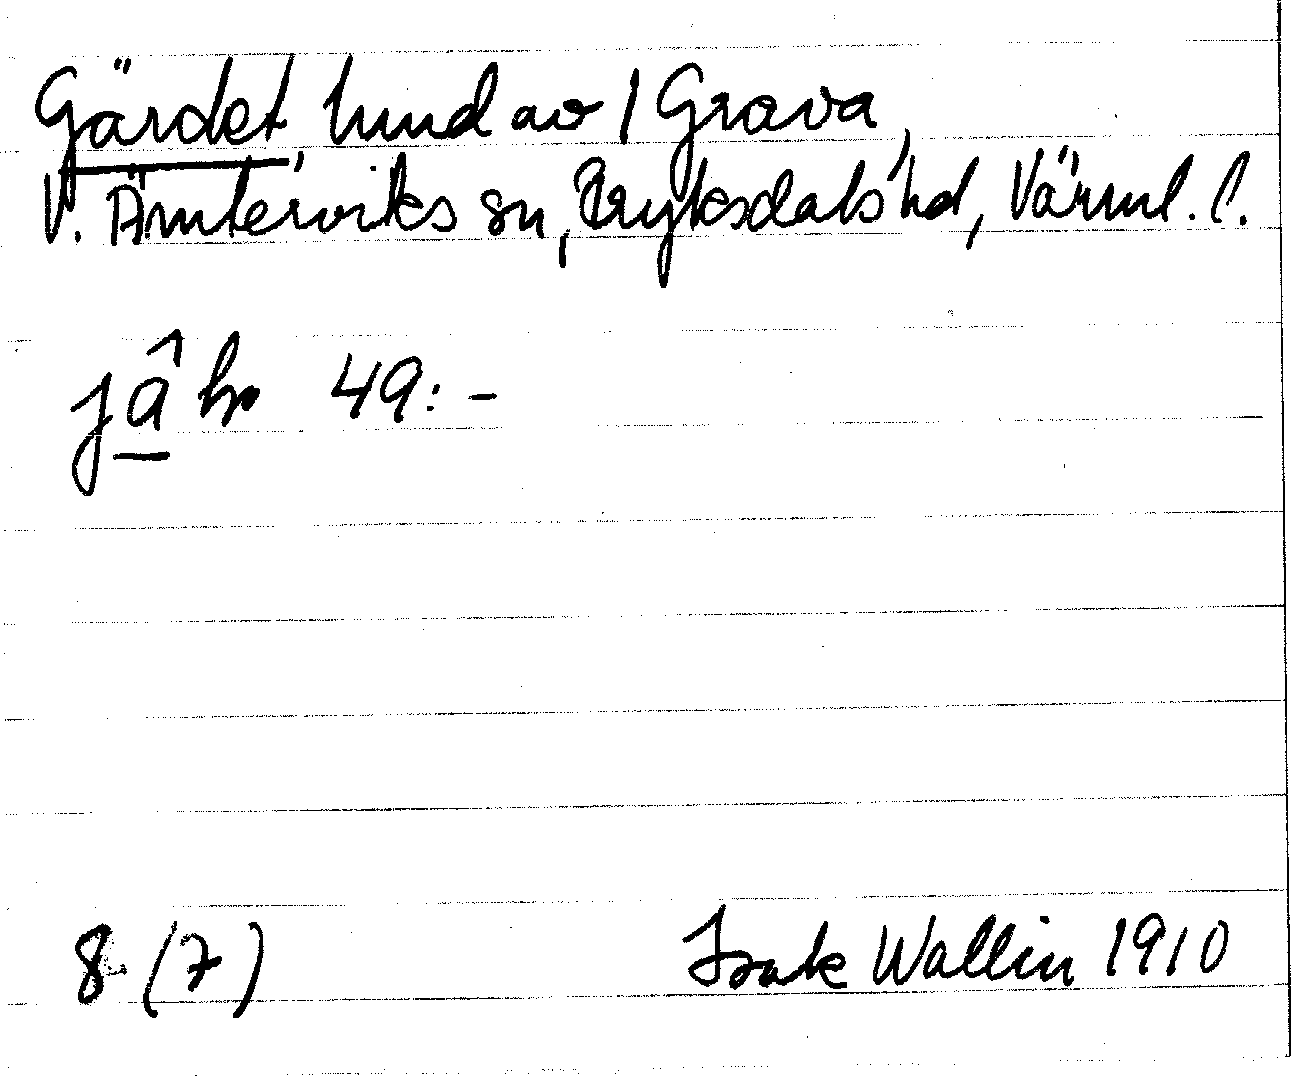 Gärdet, hmd av 1 Grava,
V. Ämterviks sn, Fryksdals hd, Värml. l.
jâ hr 49:-
8 (7) Isak Wallin 1910